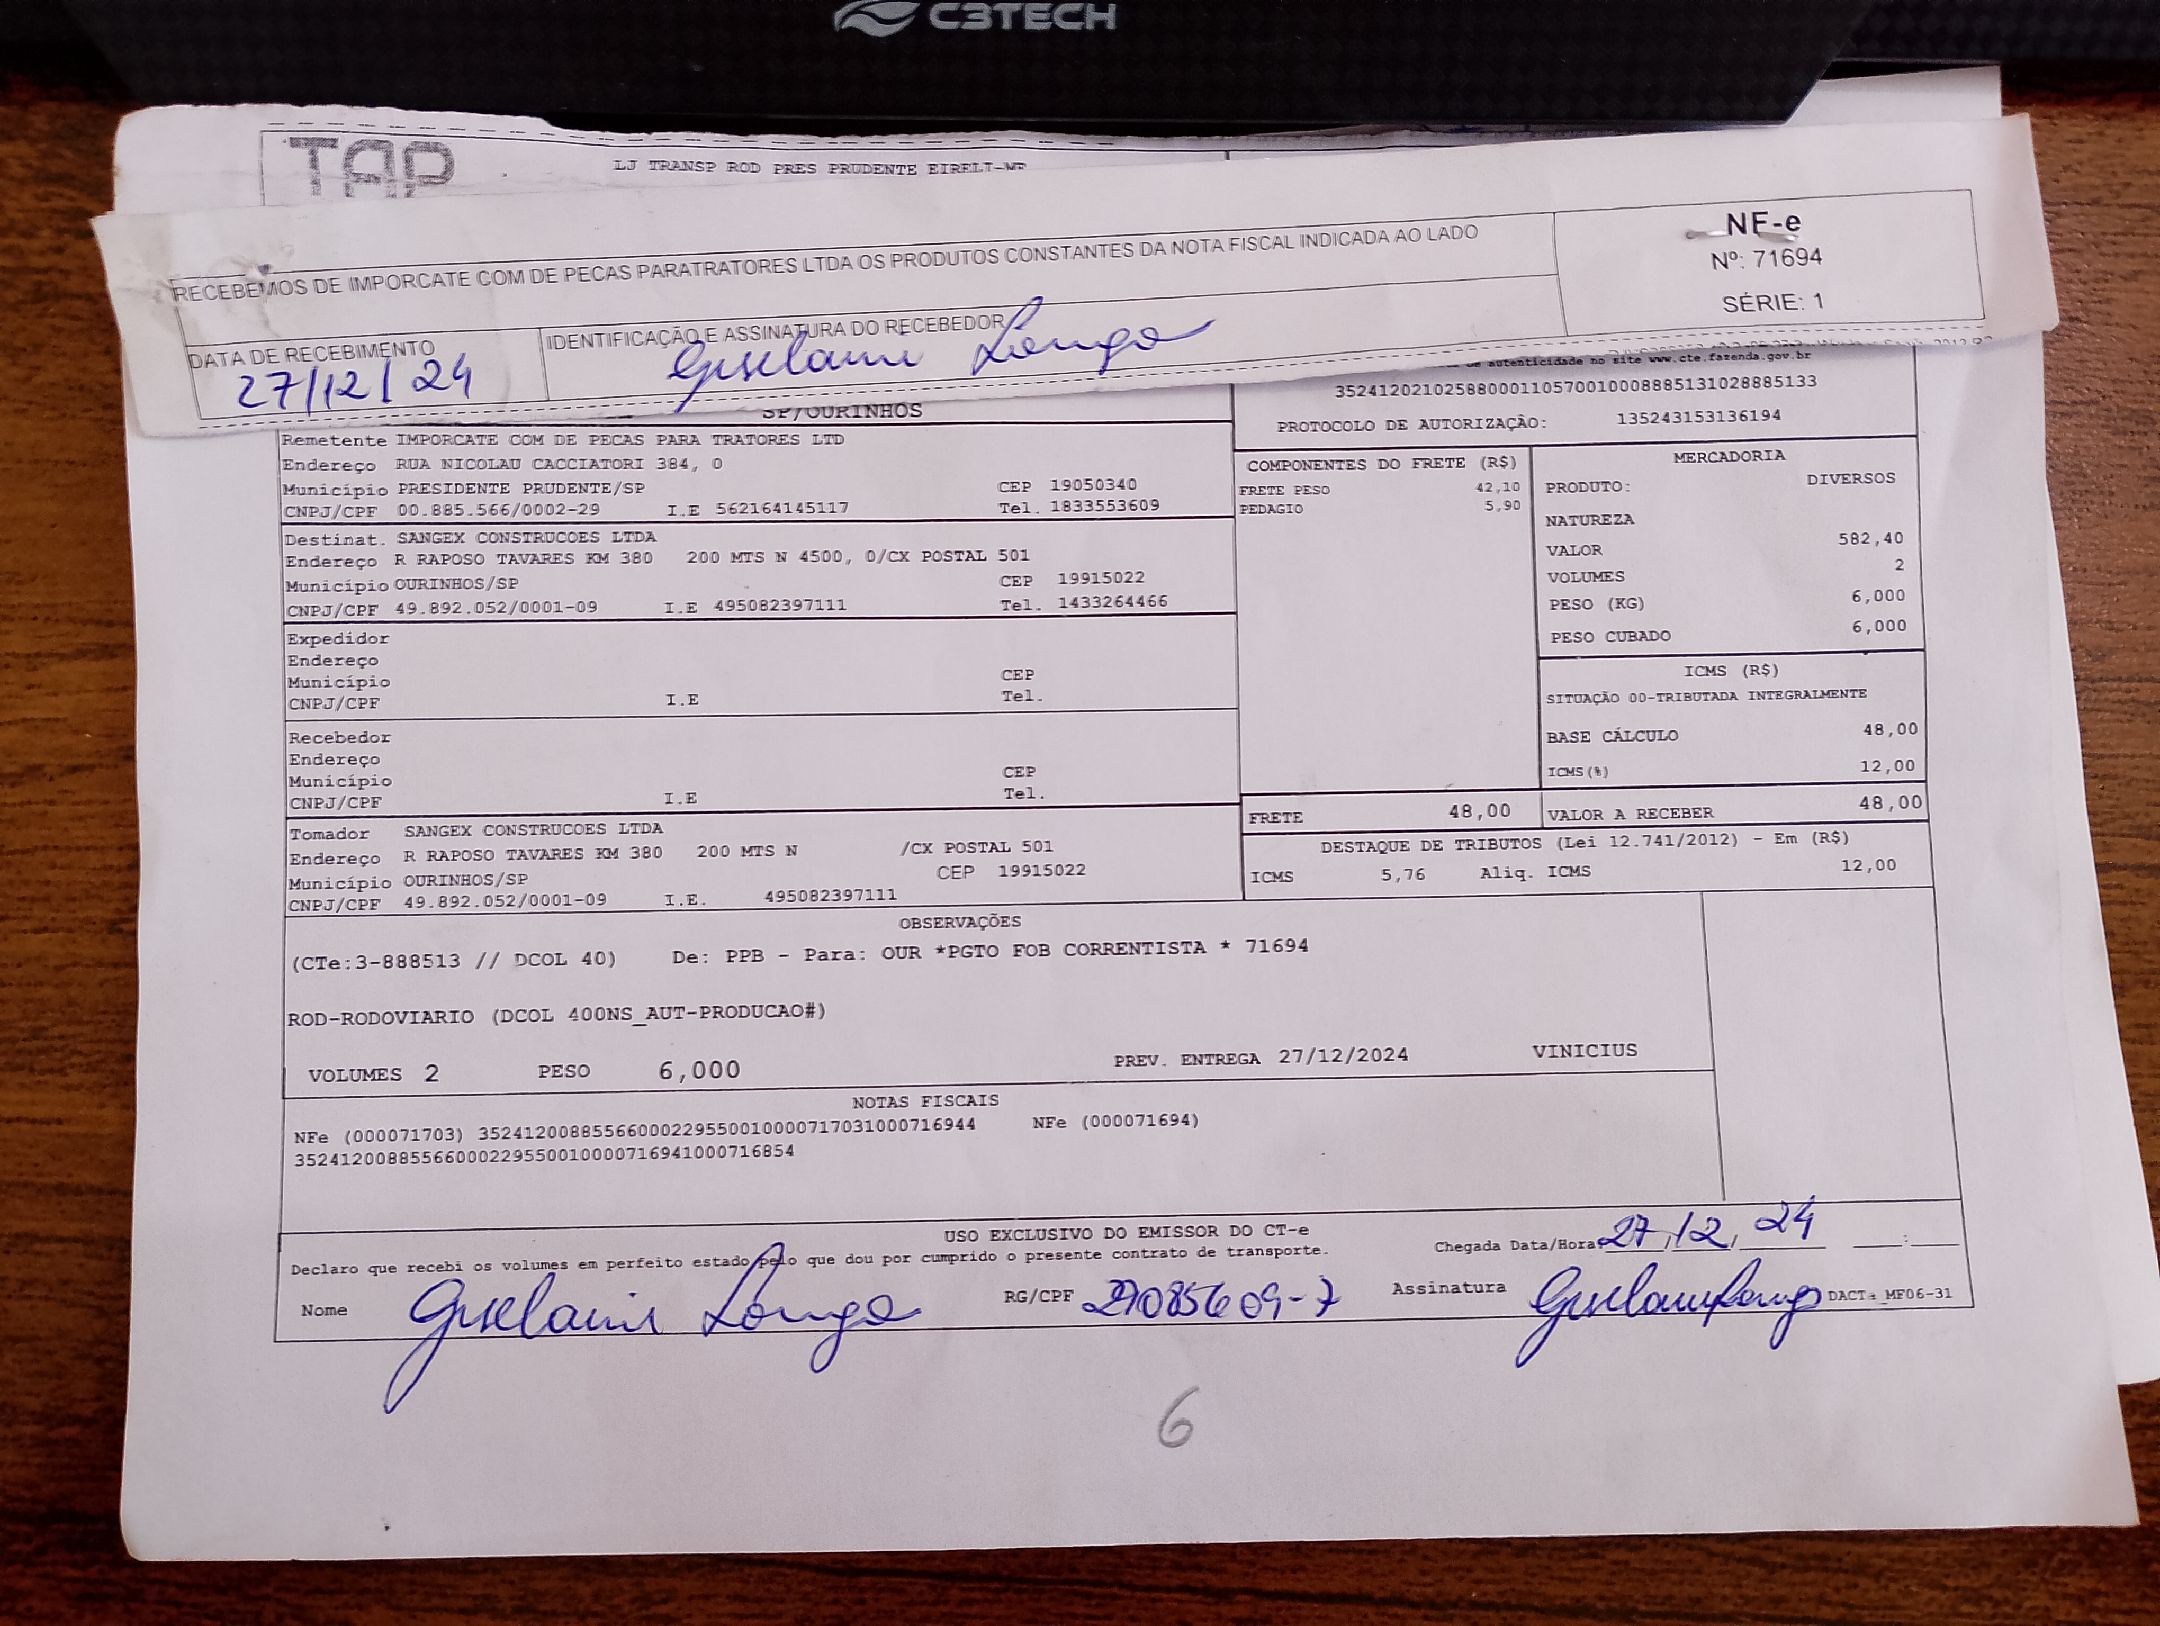 C3TECH
TAP
LJ TRANSP ROD PRES PRUDENTE EIRELI-MP
RECEBEMOS DE IMPORCATE COM DE PECAS PARATRATORES LTDA OS PRODUTOS CONSTANTES DA NOTA FISCAL INDICADA AO LADO
NF-e
Nº: 71694
SÉRIE: 1
DATA DE RECEBIMENTO
27/12/24
IDENTIFICAÇÃO E ASSINATURA DO RECEBEDOR
Giselaini Longo
autenticidade no site www.cte.fazenda.gov.br
35241202102588000110570010008885131028885133
PROTOCOLO DE AUTORIZAÇÃO: 135243153136194
SP/OURINHOS
Remetente IMPORCATE COM DE PECAS PARA TRATORES LTD
Endereço RUA NICOLAU CACCIATORI 384, 0
Município PRESIDENTE PRUDENTE/SP CEP 19050340
CNPJ/CPF 00.885.566/0002-29 I.E 562164145117 Tel. 1833553609
Destinat. SANGEX CONSTRUCOES LTDA
Endereço R RAPOSO TAVARES KM 380 200 MTS N 4500, 0/CX POSTAL 501
Município OURINHOS/SP CEP 19915022
CNPJ/CPF 49.892.052/0001-09 I.E 495082397111 Tel. 1433264466
Expedidor
Endereço
Município CEP
CNPJ/CPF I.E Tel.
Recebedor
Endereço
Município CEP
CNPJ/CPF I.E Tel.
Tomador SANGEX CONSTRUCOES LTDA
Endereço R RAPOSO TAVARES KM 380 200 MTS N /CX POSTAL 501
Município OURINHOS/SP CEP 19915022
CNPJ/CPF 49.892.052/0001-09 I.E. 495082397111
COMPONENTES DO FRETE (R$)
FRETE PESO 42,10
PEDAGIO 5,90
MERCADORIA
PRODUTO: DIVERSOS
NATUREZA
VALOR 582,40
VOLUMES 2
PESO (KG) 6,000
PESO CUBADO 6,000
ICMS (R$)
SITUAÇÃO 00-TRIBUTADA INTEGRALMENTE
BASE CÁLCULO 48,00
ICMS(%) 12,00
FRETE 48,00 VALOR A RECEBER 48,00
DESTAQUE DE TRIBUTOS (Lei 12.741/2012) - Em (R$)
ICMS 5,76 Aliq. ICMS 12,00
OBSERVAÇÕES
(CTe:3-888513 // DCOL 40) De: PPB - Para: OUR *PGTO FOB CORRENTISTA * 71694
ROD-RODOVIARIO (DCOL 400NS_AUT-PRODUCAO#)
VOLUMES 2 PESO 6,000 PREV. ENTREGA 27/12/2024 VINICIUS
NOTAS FISCAIS
NFe (000071703) 35241200885566000229550010000717031000716944 NFe (000071694)
35241200885566000229550010000716941000716854
USO EXCLUSIVO DO EMISSOR DO CT-e
Declaro que recebi os volumes em perfeito estado pelo que dou por cumprido o presente contrato de transporte.
Chegada Data/Hora: 27/12/24 __:__
Nome Giselaini Longo RG/CPF 27085609-7 Assinatura Giselaini Longo DACTe_MF06-31
6